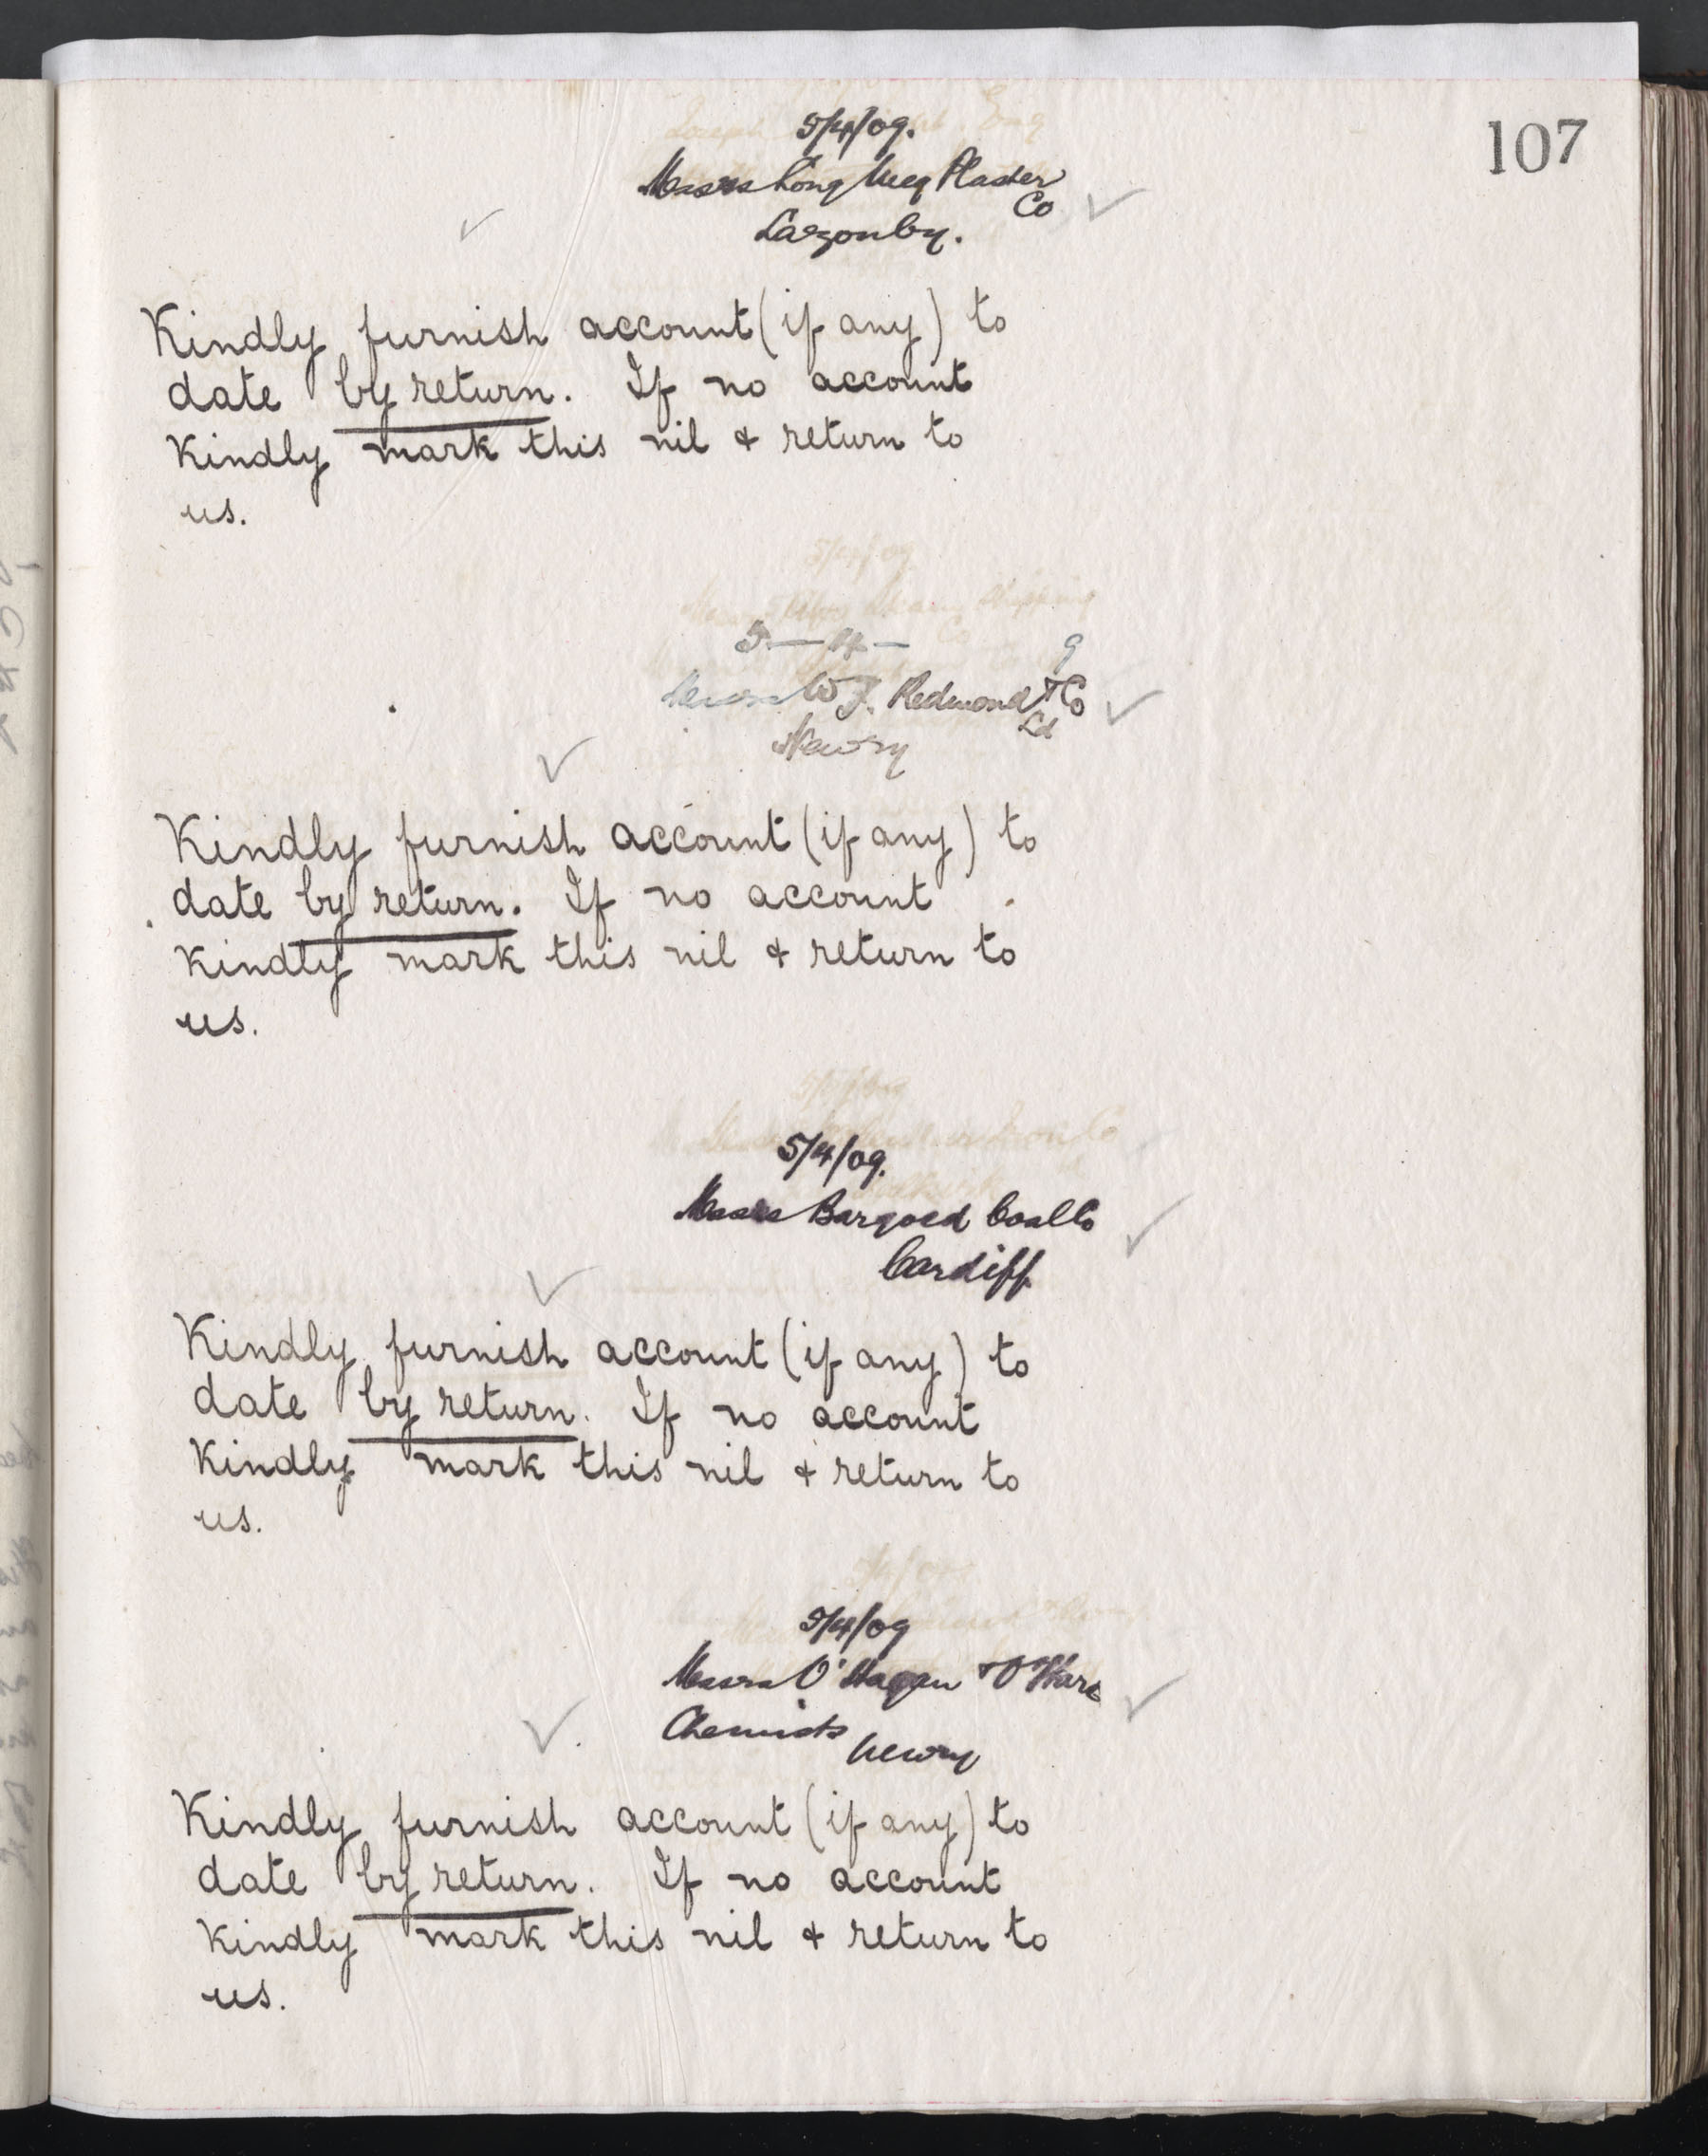 107
5/4/09.
Messrs Long Meg Plaster
Co
Lazonby.
Kindly furnish account (if any) to
date by return. If no account
Kindly mark this nil & return to
us.
5 — 4 — 9
Messrs W J. Redmond & Co
Ld
Newry
Kindly furnish account (if any) to
date by return. If no account
Kindly mark this nil & return to
us.
5/4/09.
Messrs Bargoed Coal Co
Cardiff
Kindly furnish account (if any) to
date by return. If no account
Kindly mark this nil & return to
us.
5/4/09
Messrs O'Hagan & O'Hare
Chemists
Newry
Kindly furnish account (if any) to
date by return. If no account
Kindly mark this nil & return to
us.